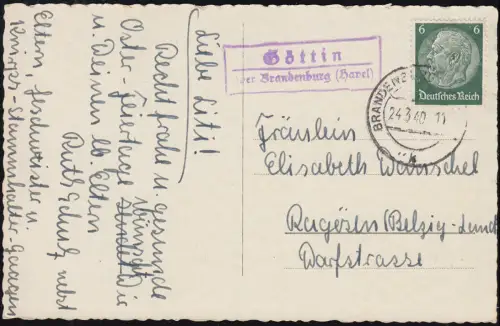 Liebe Liti!
Recht frohe u. gesunde
Oster-Feiertage wünscht
sendet Dir
u. Deinen lb. Eltern
Ruth Schulz nebst
Eltern, Geschwister u.
Göttin
über Brandenburg (Havel)
6 6
Deutsches Reich
BRANDENBURG
24.3.40. 11
Fräulein
Elisabeth
Ragösen (Belzig-Land
Dorfstrasse